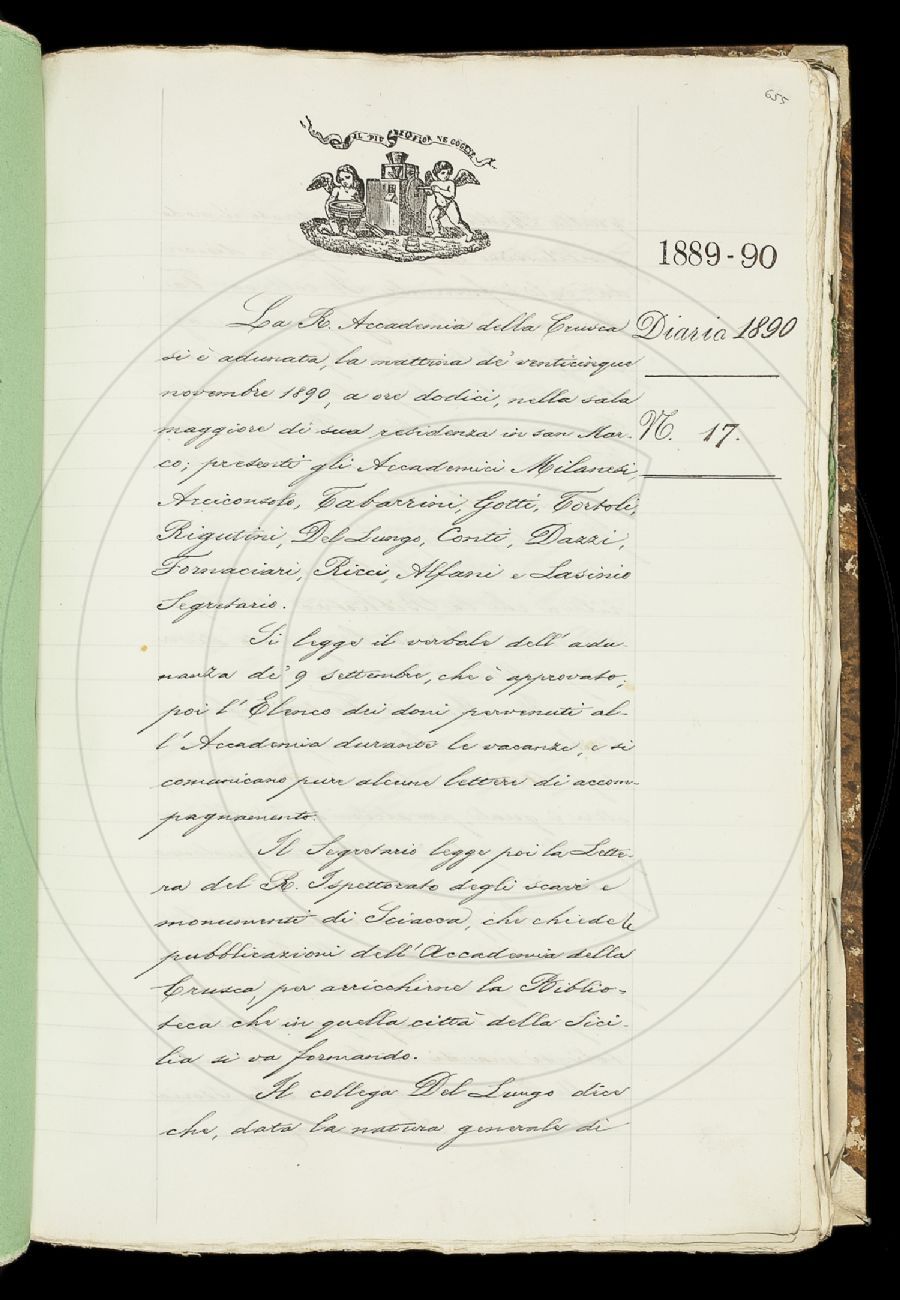 655
IL PIÙ BEL FIOR NE COGLIE
1889-90
La R. Accademia della Crusca
Diario 1890
si è adunata, la mattina de' venticinque
novembre 1890, a ore dodici, nella sala
maggiore di sua residenza in san Mar-
N. 17.
co; presenti gli Accademici Milanesi,
Arciconsolo, Tabarrini, Gotti, Tortoli,
Rigutini, Del Lungo, Conti, Dazzi,
Fornaciari, Ricci, Alfani e Lasinio
Segretario.
Si legge il verbale dell' adu-
nanza de' 9 settembre, che è approvato,
poi l' Elenco dei doni pervenuti al-
l' Accademia durante le vacanze, e si
comunicano pure alcune lettere di accom-
pagnamento.
Il Segretario legge poi la Lette-
ra del R. Ispettorato degli scavi e
monumenti di Sciacca, che chiede le
pubblicazioni dell' Accademia della
Crusca, per arricchirne la Biblio-
teca che in quella città della Sici-
lia si va formando.
Il collega Del Lungo dice
che, data la natura generale di